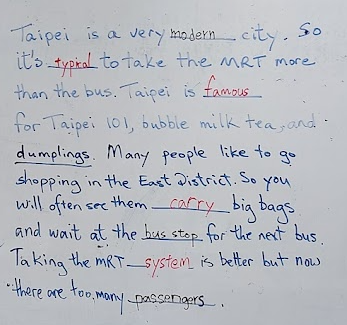 Taipei is a very modern city. So
it's typical to take the MRT more
than the bus. Taipei is famous
for Taipei 101, bubble milk tea, and
dumplings. Many people like to go
shopping in the East District. So you
will often see them carry big bags
and wait at the bus stop for the next bus.
Taking the MRT system is better but now
there are too many passengers.